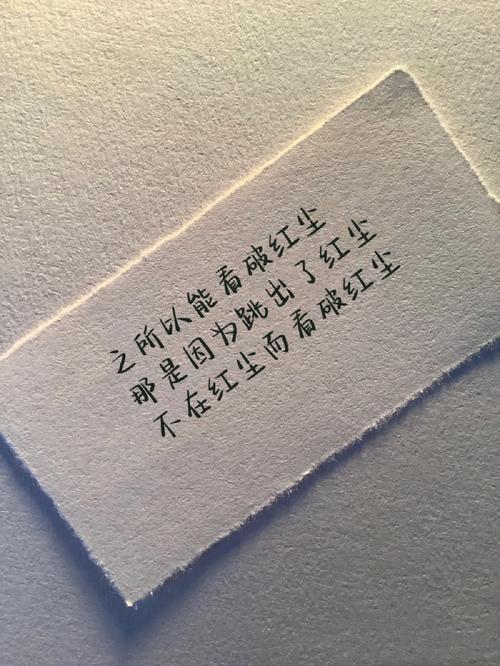 之所以能看破红尘
那是因为跳出了红尘
不在红尘而看破红尘